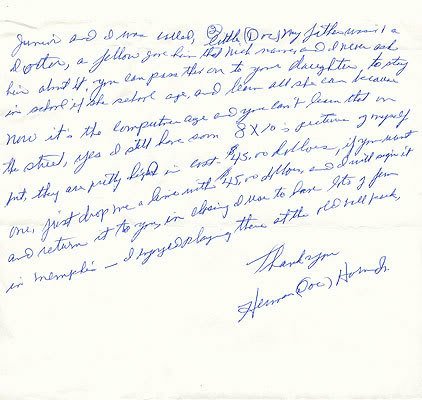 Junior and I was called, Little (Doc) My father wasn't a
Doctor, a fellow gave him that nick name, and I never ask
him about it. you can pass this on to your daughter, to stay
in school if she school age, and learn all she can because
now it's the computer age and you can't learn that on
the street, yes I still have some 8 X 10's picture of myself
but, they are pretty high in cost. $45.00 dollars, if you want
one, just drop me a line with $45.00 dollars, and I will sign it
and return it to you, in closing I use to have lots of fun
in memphis — I enjoyed playing there at the old ball park,
Thank you
Herman (Doc) Horn Jr.